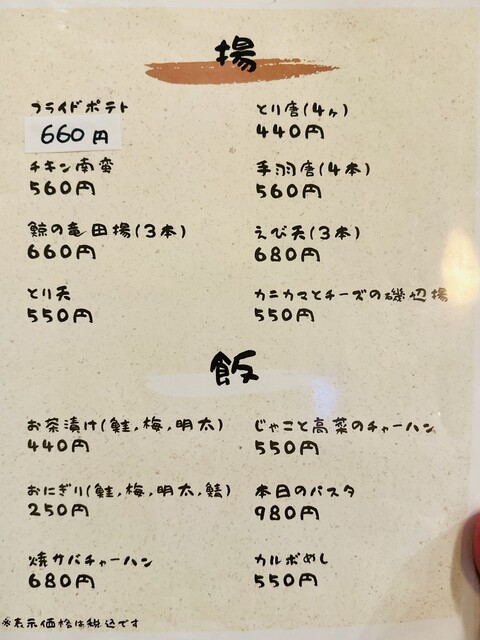 揚
フライドポテト
660円
チキン南蛮
560円
鯨の竜田揚(3本)
660円
とり天
550円
とり唐(4ヶ)
440円
手羽唐(4本)
560円
えび天(3本)
680円
カニカマとチーズの磯辺揚
550円
飯
お茶漬け(鮭,梅,明太)
440円
おにぎり(鮭,梅,明太,鯖)
250円
焼サバチャーハン
680円
じゃこと高菜のチャーハン
550円
本日のパスタ
980円
カルボめし
550円
※表示価格は税込です